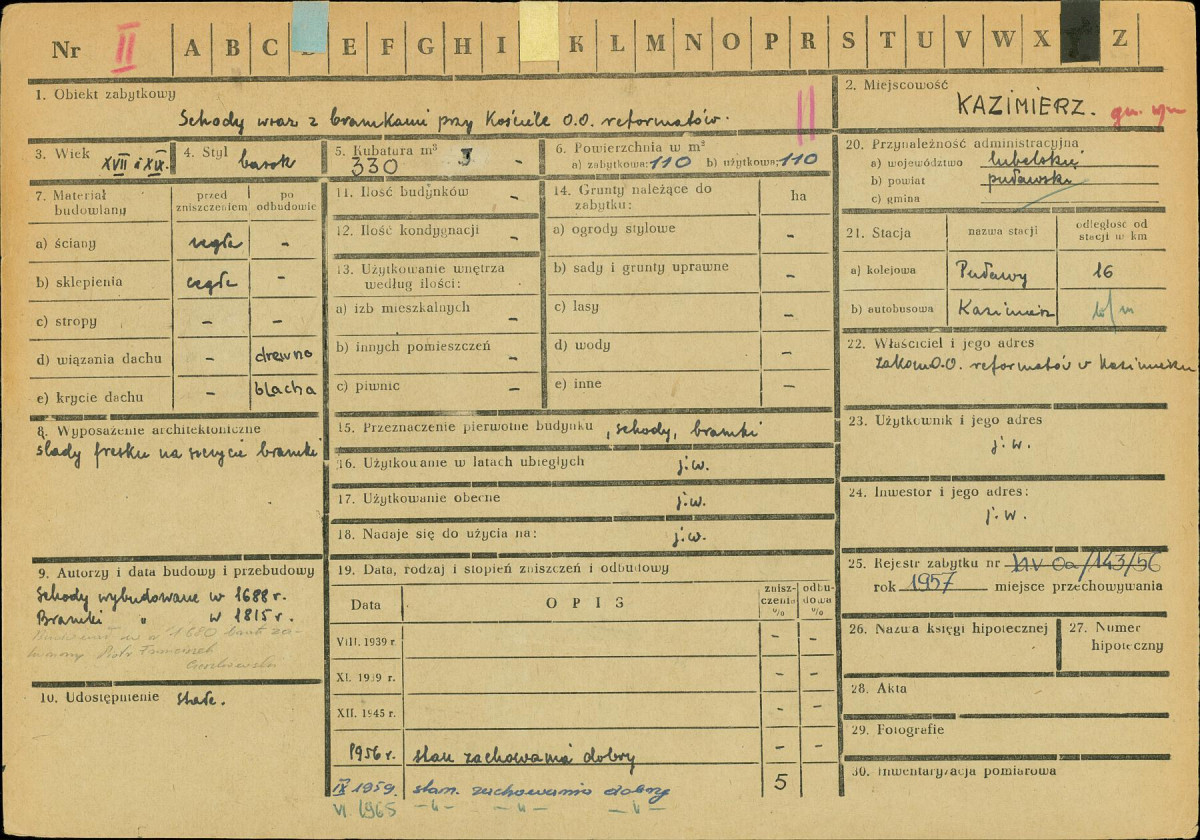 Nr II A B C E F G H I K L M N O P R S T U V W X Z
1. Obiekt zabytkowy
Schody wraz z bramkami przy Kościele O.O. reformatów. II
2. Miejscowość
KAZIMIERZ.
3. Wiek
XVII i XIX.
4. Styl barok
5. Kubatura m³
330 -
6. Powierzchnia w m²
a) zabytkowa: 110 b) użytkowa: 110
20. Przynależność administracyjna
a) województwo lubelskie
b) powiat puławski
c) gmina
7. Materiał budowlany
przed zniszczeniem
po odbudowie
a) ściany cegła -
b) sklepienia cegła -
c) stropy - -
d) wiązania dachu - drewno
e) krycie dachu - blacha
11. Ilość budynków -
12. Ilość kondygnacji -
13. Użytkowanie wnętrza
według ilości:
a) izb mieszkalnych -
b) innych pomieszczeń -
c) piwnic -
14. Grunty należące do
zabytku:
ha
a) ogrody stylowe -
b) sady i grunty uprawne -
c) lasy -
d) wody -
e) inne -
21. Stacja
nazwa stacji
odległość od
stacji w km
a) kolejowa Puławy 16
b) autobusowa Kazimierz
22. Właściciel i jego adres
Zakon O.O. reformatów w Kazimierzu
8. Wyposażenie architektoniczne
ślady fresku na szczycie bramki
15. Przeznaczenie pierwotne budynku schody, bramki
16. Użytkowanie w latach ubiegłych j.w.
17. Użytkowanie obecne j.w.
18. Nadaje się do użycia na: j.w.
23. Użytkownik i jego adres
j.w.
24. Inwestor i jego adres:
j.w.
9. Autorzy i data budowy i przebudowy
Schody wybudowane w 1688 r.
Bramki " w 1815 r.
Piotr Franciszek
19. Data, rodzaj i stopień zniszczeń i odbudowy
Data
OPIS
znisz-
czenia
%
odbu-
dowa
%
VIII. 1939 r. - -
XI. 1939 r. - -
XII. 1945 r. - -
1956 r. stan zachowania dobry - -
IX 1959. stan. zachowania dobry 5
VI 1965 -"- -"- -"-
25. Rejestr zabytku nr KIV Oa/143/56
rok 1957 miejsce przechowywania
26. Nazwa księgi hipotecznej
27. Numer
hipoteczny
10. Udostępnienie stałe.
28. Akta
29. Fotografie
30. Inwentaryzacja pomiarowa